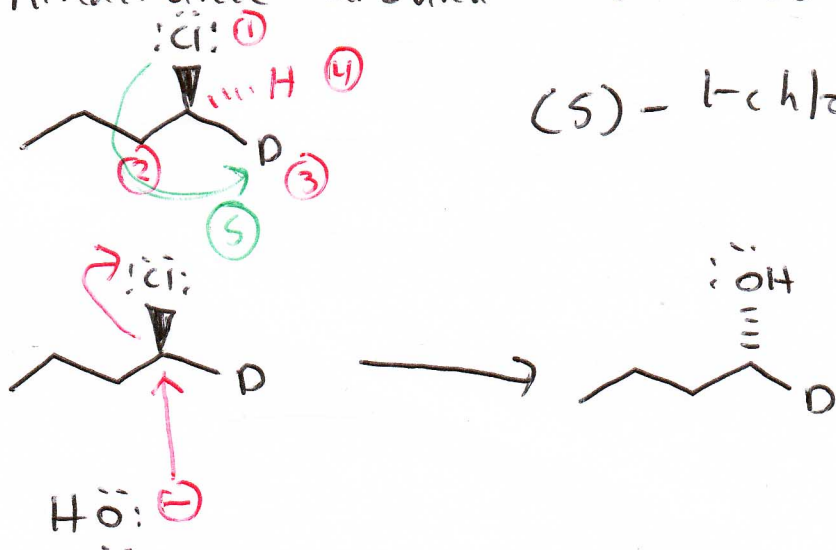 :Cl: ①
H ④
(S) - 1-chlo
② D ③
S
:Cl: :OH
D D
HO: ⊖